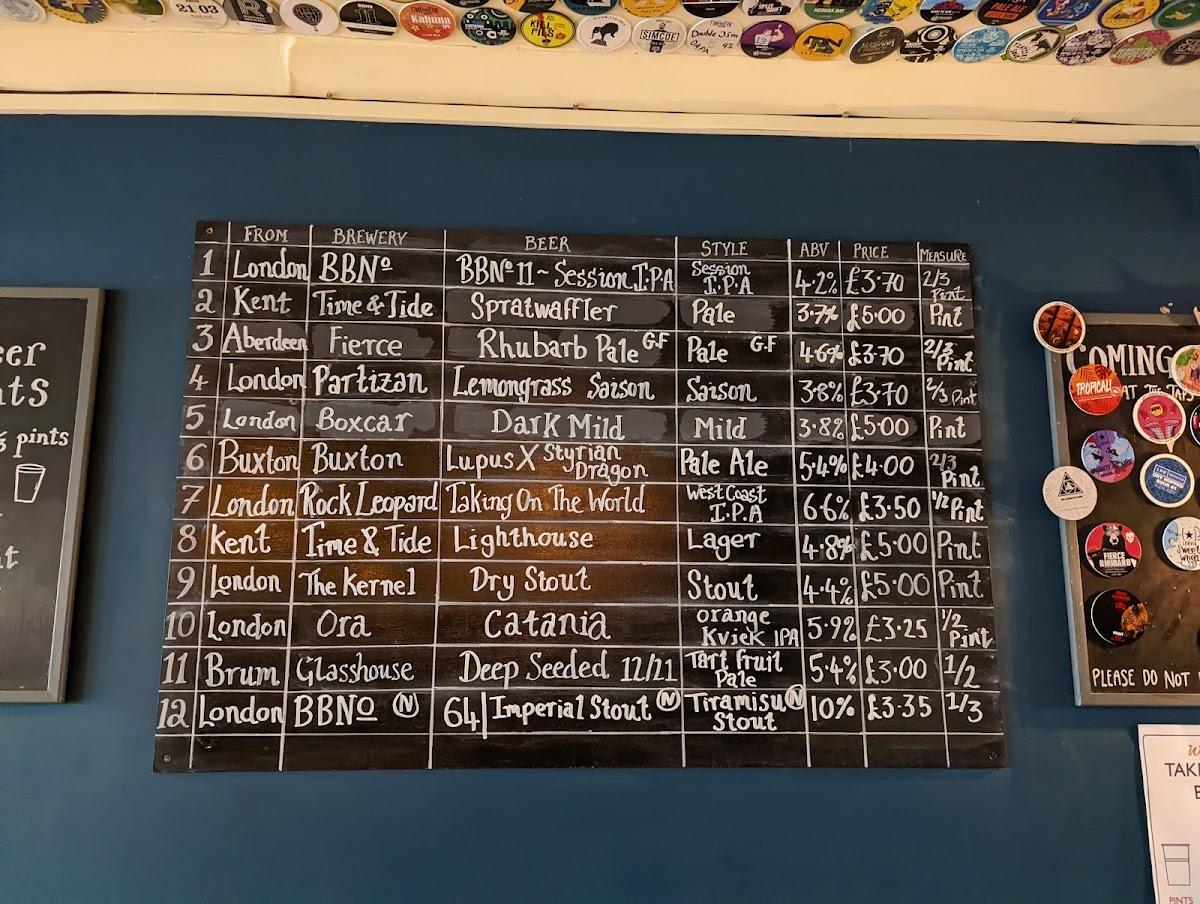 21 03
Kahuna
KILL PILS
SIMCOE
Double Jim
9%
PALE ALE
FROM BREWERY BEER STYLE ABV PRICE MEASURE
1 London BBNº BBNº 11~ Session I.P.A Session I.P.A 4.2% £3.70 2/3 Pint
2 Kent Time & Tide Spratwaffler Pale 3.7% £5.00 Pint
3 Aberdeen Fierce Rhubarb Pale G.F Pale G.F 4.6% £3.70 2/3 Pint
4 London Partizan Lemongrass Saison Saison 3.8% £3.70 2/3 Pint
5 London Boxcar Dark Mild Mild 3.8% £5.00 Pint
6 Buxton Buxton Lupus X Styrian Dragon Pale Ale 5.4% £4.00 2/3 Pint
7 London Rock Leopard Taking On The World West Coast I.P.A 6.6% £3.50 1/2 Pint
8 Kent Time & Tide Lighthouse Lager 4.8% £5.00 Pint
9 London The Kernel Dry Stout Stout 4.4% £5.00 Pint
10 London Ora Catania orange Kviek IPA 5.9% £3.25 1/2 Pint
11 Brum Glasshouse Deep Seeded 12/21 Tart fruit Pale 5.4% £3.00 1/2
12 London BBNº Ⓝ 64|Imperial Stout Ⓝ Tiramisu Ⓝ Stout 10% £3.35 1/3
eer
ts
pints
t
COMING
AT THE TAPS
TROPICAL
FIERCE
RHUBARB
PLEASE DO NOT
TAK
PINTS